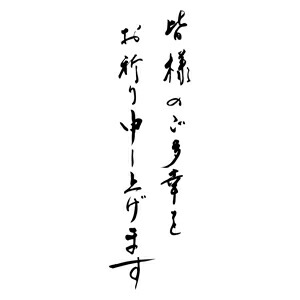 皆様のご多幸を
お祈り申し上げます